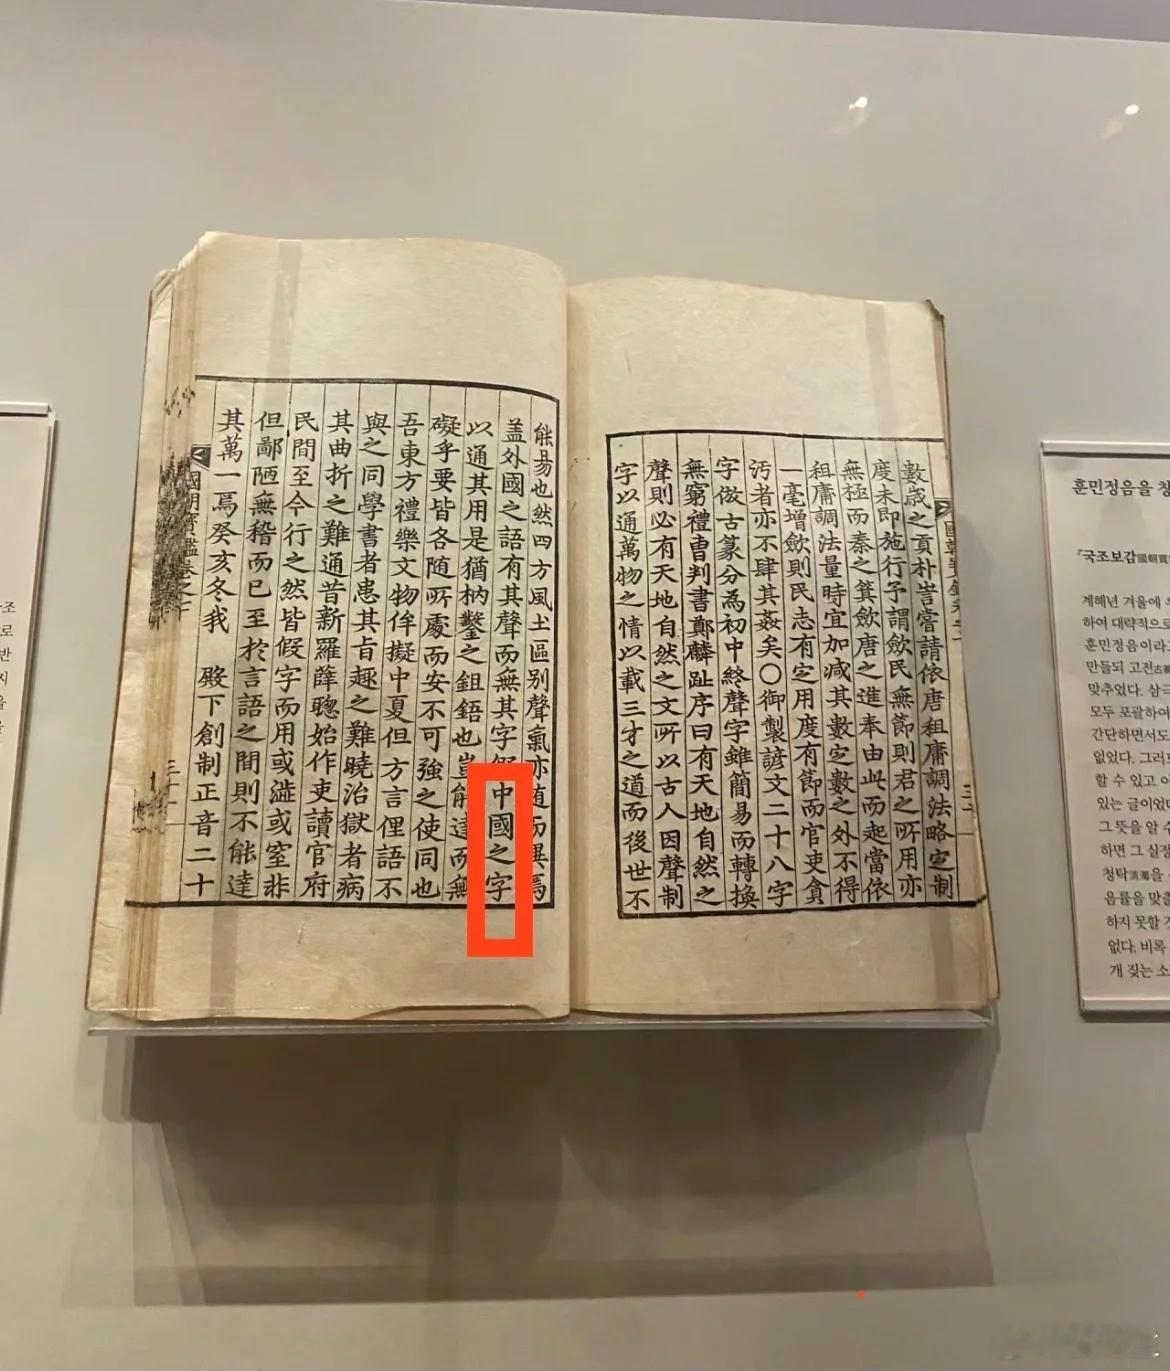 數歲之貢朴訔嘗請依唐租庸調法略定制
度未即施行予謂歛民無節則君之所用亦
無極而秦之箕歛唐之進奉由此而起當依
租庸調法量時宜加減其數定數之外不得
一毫增歛則民志有定用度有節而官吏貪
污者亦不肆其姦矣〇御製諺文二十八字
字倣古篆分為初中終聲字雖簡易而轉換
無窮禮曹判書鄭麟趾序曰有天地自然之
聲則必有天地自然之文所以古人因聲制
字以通萬物之情以載三才之道而後世不
能易也然四方風土區别聲氣亦随而異焉
盖外國之語有其聲而無其字假中國之字
以通其用是猶枘鑿之鉏鋙也豈能達而無
礙乎要皆各随所處而安不可強之使同也
吾東方禮樂文物侔擬中夏但方言俚語不
與之同學書者患其旨趣之難曉治獄者病
其曲折之難通昔新羅薛聰始作吏讀官府
民間至今行之然皆假字而用或澁或窒非
但鄙陋無稽而已至於言語之間則不能達
其萬一焉癸亥冬我 殿下創制正音二十
國朝寶鑑卷之
훈민정음을 창
『국조보감國朝寶
계해년 겨울에 우
하여 대략적으로
훈민정음이라
만들되 고전古篆
맞추었다. 삼극
모두 포괄하여
간단하면서도
없었다. 그러므
할 수 있고 어
있는 글이었다
그 뜻을 알 수
하면 그 실정
청탁清濁을
음률을 맞출
하지 못할 것
없다. 비록
개 짖는 소